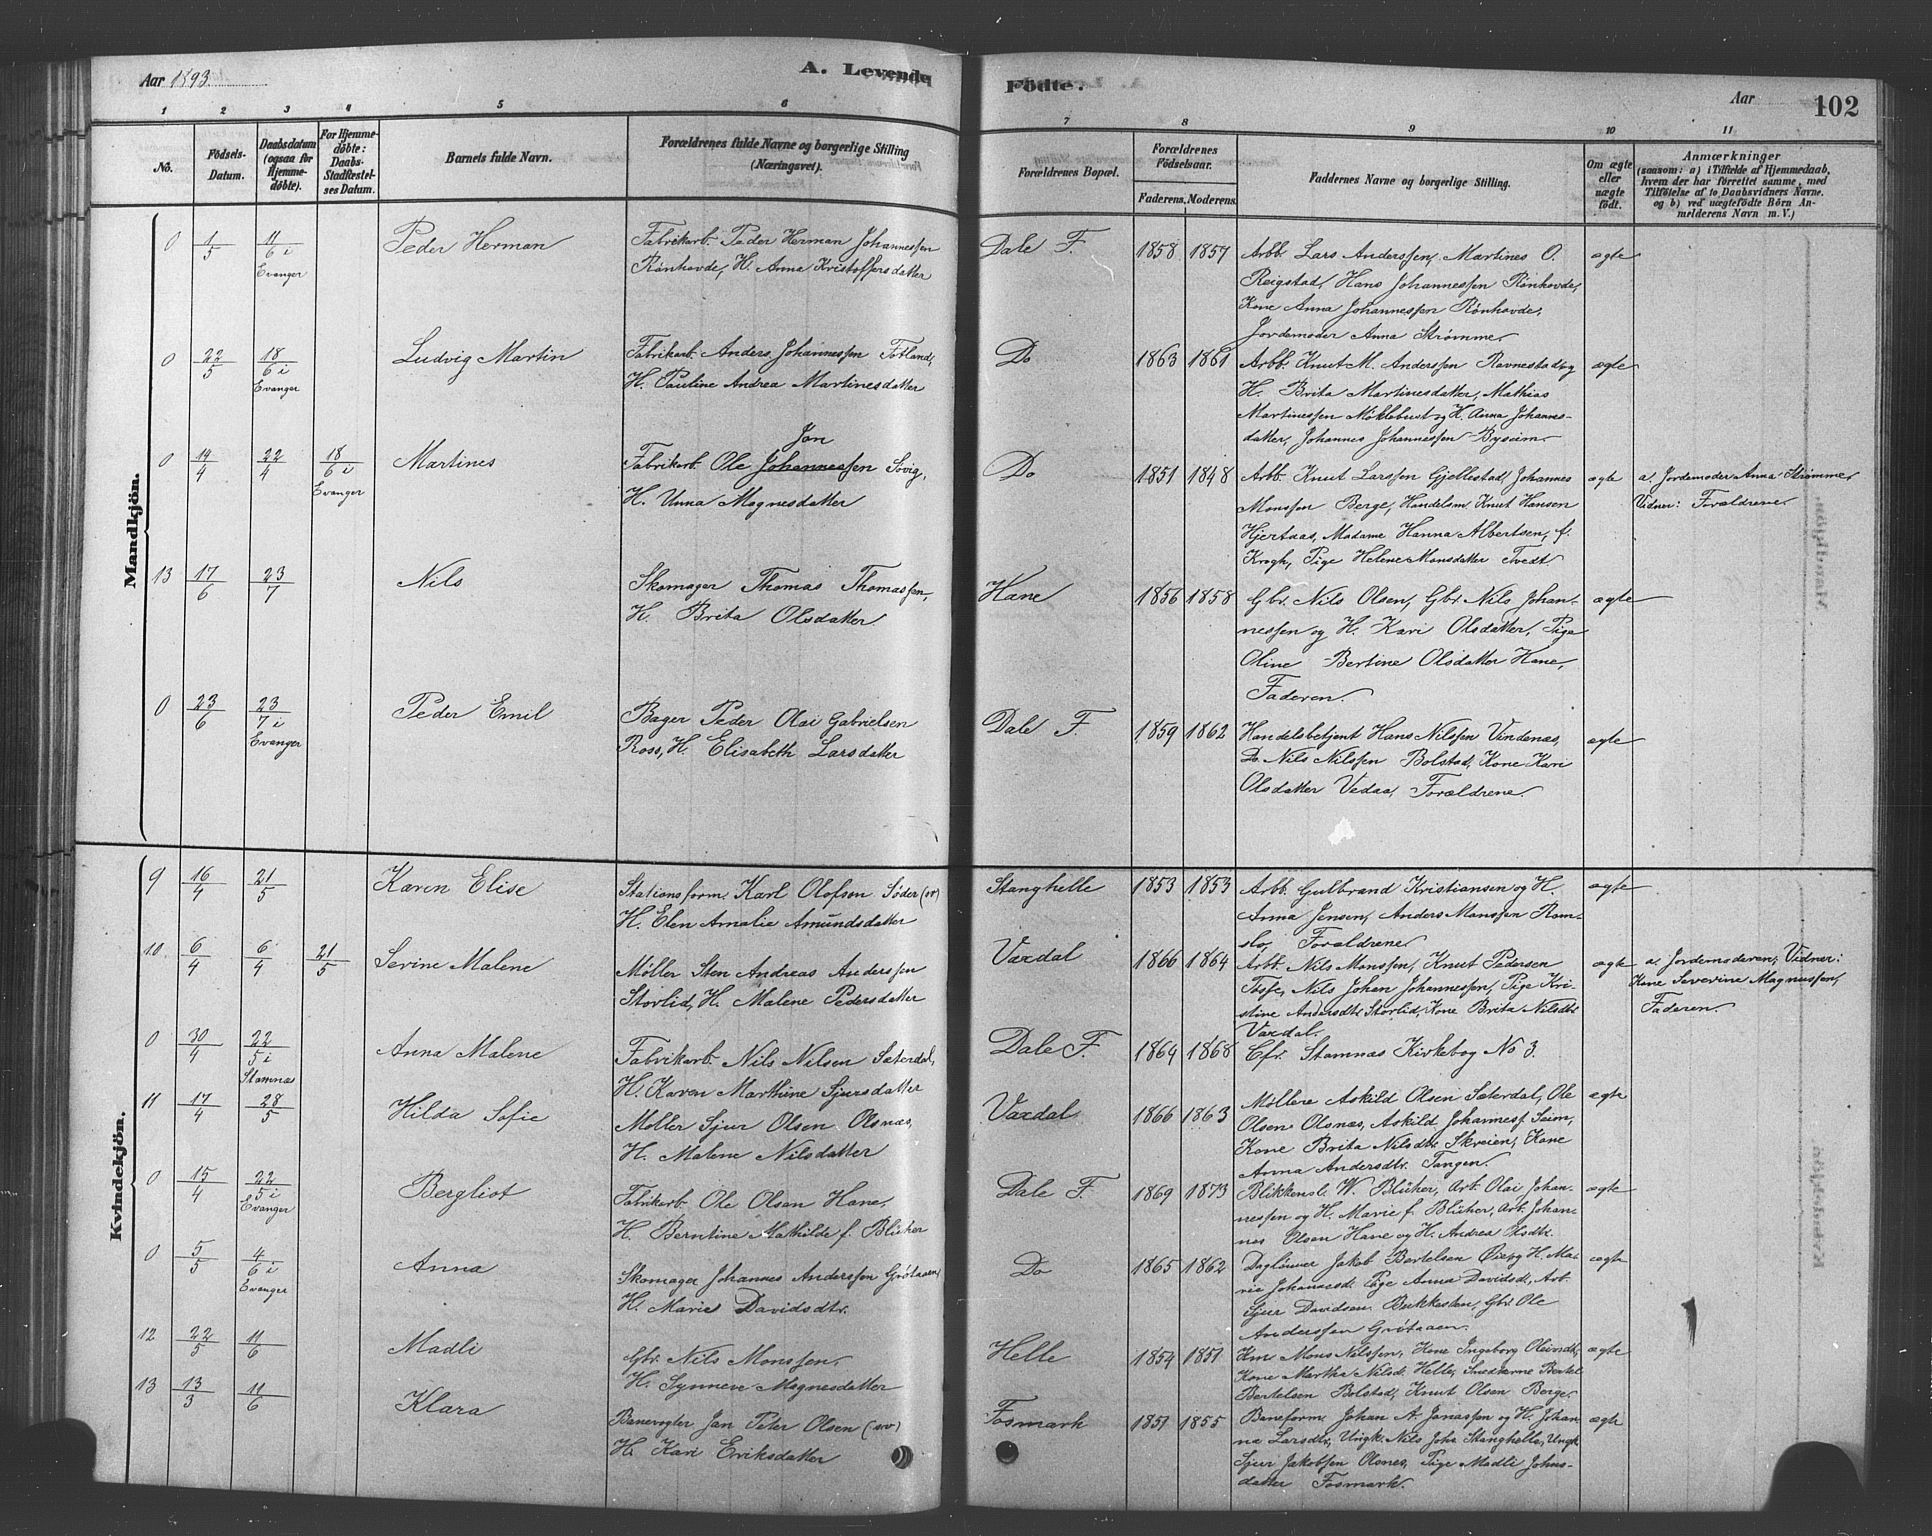 Aar 1893
A. Levende
Födte.
Aar
102
1 2 3 4 5 6 7 8 9 10 11
No.
Födsels-
Datum.
Daabsdatum
(ogsaa for
Hjemme-
döbte).
For Hjemme-
döbte:
Daabs-
Stadfæstel-
ses Datum.
Barnets fulde Navn.
Forældrenes fulde Navne og borgerlige Stilling
(Næringsvei).
Forældrenes Bopæl.
Forældrenes
Födselsaar.
Faderens. Moderens.
Faddernes Navne og borgerlige Stilling.
Om ægte
eller
uægte
födt.
Anmærkninger
(saasom: a) i Tilfælde af Hjemmedaab,
hvem der har förrettet samme, med
Tilföielse af to Daabsvidners Navne.
og b) ved uægtefödte Börn An-
melderens Navn m. V.)
Mandkjön.
0 1/5 11/6 i
Evanger
Peder Herman
Fabrikarb. Peder Herman Johannessen
Rønhovde, H. Anna Kristoffersdatter
Dale F. 1858 1857
Arbb. Lars Anderssen, Martines O.
Reigstad, Hans Johannessen Rønhovde,
Kone Anna Johannessen Rønhovde,
Jordemoder Anna Strømme
ægte
0 22/5 18/6 i
Evanger
Ludvig Martin
Fabrikarb. Anders Johannessen Totland,
H. Pauline Andrea Martinesdatter
Do 1863 1861
Arbb. Knut M. Anderssen Ravnestad og
H. Brita Martinesdatter, Mathias
Martinessen Møklebust og H. Anna Johannes-
datter, Johannes Johannessen Byseim
ægte
0 14/4 22/4 18/6 i
Evanger
Martines
Jon
Fabrikarb. Ole Johannessen Sovig,
H. Unna Magnesdatter
Do 1851 1848
Arbb. Knut Larssen Gjellestad, Johannes
Monssen Berge, Handelsm. Knut Hansen
Hjertaas, Madame Hanna Albertsen, f.
Krogh, Pige Helene Monsdatter Tvedt
ægte
a, Jordemoder Anna Strømme
Vidner: Forældrene
13 17/6 23/7
Nils
Skomager Thomas Thomassen,
H. Brita Olsdatter
Hane 1856 1858
Gbr. Nils Olsen, Gbr. Nils Johan-
nessen og H. Kari Olsdatter, Pige
Oline Bertine Olsdatter Hane,
Faderen
ægte
0 23/6 23/7 i
Evanger
Peder Emil
Bager Peder Olai Gabrielsen
Ross, H. Elisabeth Larsdatter
Dale F. 1859 1862
Handelsbetjent Hans Nilssen Vindenas,
Do. Nils Nilssen Bolstad, Kone Kari
Olsdatter Vedaa, Forældrene
ægte
Kvindekjön.
9 16/4 21/5
Karen Elise
Stationsform. Karl Olofson Söder (sv)
H. Elen Amalie Amundsdatter
Stanghelle 1853 1853
Arbb. Gulbrand Kristiansen og H.
Anna Jensen, Anders Monssen Rom-
slo, Forældrene
ægte
10 6/4 6/4 21/5
Serine Malene
Møller Sten Andreas Anderssen
Storlid, H. Malene Pedersdatter
Vaxdal 1866 1864
Arbb. Nils Monssen, Knut Pedersen
Tosse, Nils Johan Johannessen, Pige Kri-
stine Andersdtr. Storlid, Kone Brita Nilsdtr.
Vaxdal.
ægte
a, Jordemoderen, Vidner:
Kone Severine Magnussen,
Faderen
0 30/4 22/5 i
Stamnæs
Anna Malene
Fabrikarb. Nils Nilsen Sæterdal,
H. Karen Marthine Sjursdatter
Dale F. 1864 1868
Cfr. Stamnæs Kirkebog No 3.
11 17/4 28/5
Hilda Sofie
Møller Sjur Olsen Olsnæs,
H. Malene Nilsdatter
Vaxdal 1866 1863
Møllere Askild Olsen Sæterdal, Ole
Olsen Olsnæs, Askild Johanness. Seim,
Kone Brita Nilsdtr. Skreien, Kone
Anna Andersdtr. Tangen
ægte
0 15/4 22/5 i
Evanger
Bergliot
Fabrikarb. Ole Olsen Hane,
H. Berntine Mathilde f. Blücher
Dale F. 1869 1873
Blikkensl. W. Blücher, Arb. Olai Johan-
nessen og H. Marie f. Blücher, Arb. Johan-
nes Olsen Hane og H. Andrea Olsdtr.
ægte
0 5/5 4/6 i
Evanger
Anna
Skomager Johannes Anderssen Grøtaaen
H. Marie Davidsdtr.
Do 1865 1862
Daglønner Jakob Bertelsen og H. Ma-
rie Johannesd. Pige Anna Davidsd., Arb.
Sjur Davidsen Bukkesten, Gbr. Ole
Anderssen Grøtaaen.
ægte
12 22/5 11/6
Madli
Gbr. Nils Monssen,
H. Synneve Magnesdatter
Helle 1854 1851
Km Mons Nilssen, Kone Ingeborg Oleivdtr,
Kone Martha Nilsd. Helle, Snedkerne Bertel
Bertelsen Bolstad, Knut Olsen Berge
ægte
13 13/3 11/6
Klara
Banevogter Jan Peter Olsen (sv)
H. Kari Eriksdatter
Fosmark 1851 1855
Baneform. Johan A. Jonassen og H. Johan-
na Larsdtr., Ungk. Nils Johs. Stanghelle, Ungk.
Sjur Jakobsen Olsnes, Pige Madli Johns-
datter Fosmark.
ægte